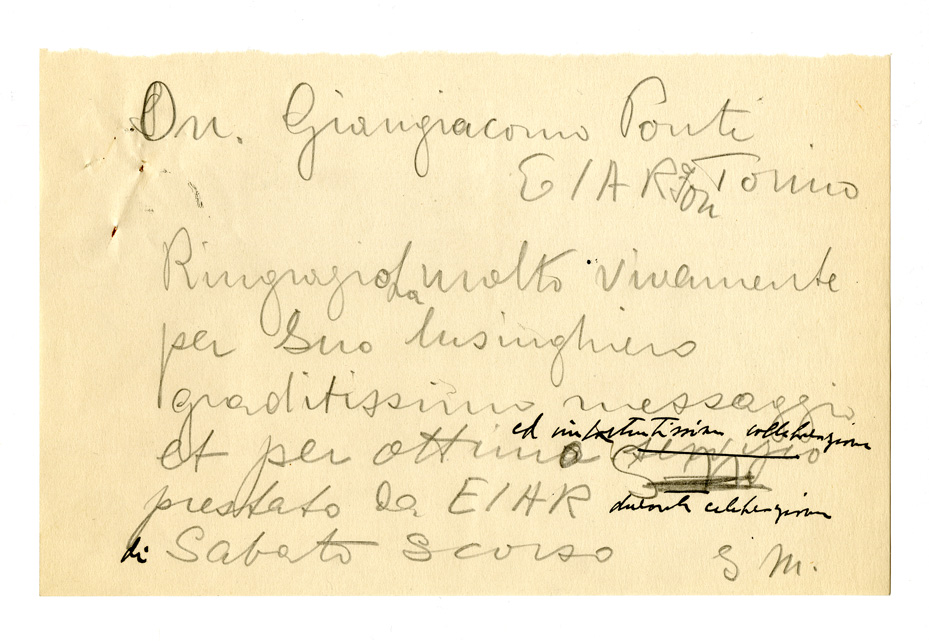 Dr. Giangiacomo Ponti
EIAR Torino
RingrazioLa molto vivamente
per Suo lusinghiero
graditissimo messaggio
ed importantissima collaborazione
et per ottimo servizio
prestato da EIAR durante celebrazione
di Sabato Scorso G M.